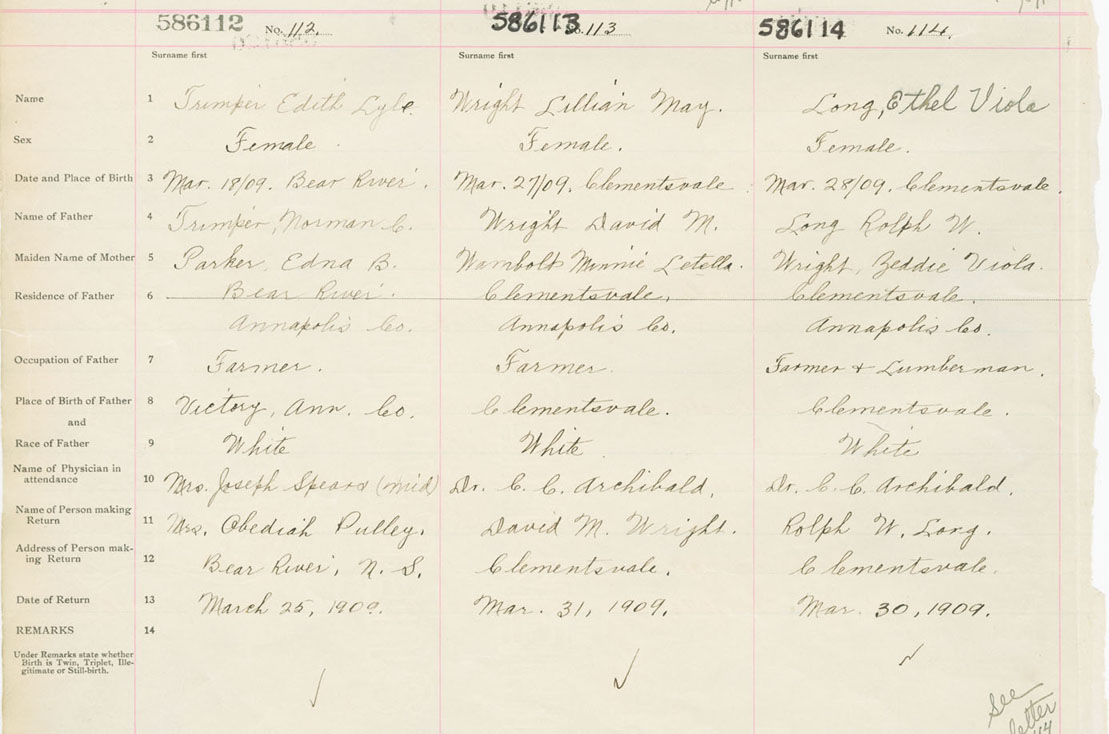 586112 No. 112. 586113 No. 113 586114 No. 114.
Surname first Surname first Surname first
Name 1 Trimper Edith Lyle. Wright Lillian May. Long, Ethel Viola
Sex 2 Female. Female. Female.
Date and Place of Birth 3 Mar. 18/09. Bear River. Mar. 27/09. Clementsvale. Mar. 28/09. Clementsvale.
Name of Father 4 Trimper, Norman C. Wright David M. Long Rolph W.
Maiden Name of Mother 5 Parker, Edna B. Wambolt Minnie Letella. Wright, Zeddie Viola.
Residence of Father 6 Bear River. Clementsvale. Clementsvale.
Annapolis Co. Annapolis Co. Annapolis Co.
Occupation of Father 7 Farmer. Farmer. Farmer & Lumberman.
Place of Birth of Father 8 Victory, Ann. Co. Clementsvale. Clementsvale.
and
Race of Father 9 White White White
Name of Physician in
attendance 10 Mrs. Joseph Spears (mid) Dr. C. C. Archibald. Dr. C. C. Archibald.
Name of Person making
Return 11 Mrs. Obediah Pulley. David M. Wright. Rolph W. Long.
Address of Person mak-
ing Return 12 Bear River, N. S. Clementsvale. Clementsvale.
Date of Return 13 March 25, 1909. Mar. 31, 1909. Mar. 30, 1909.
REMARKS 14
Under Remarks state whether
Birth is Twin, Triplet, Ille-
gitimate or Still-birth.
See
letter